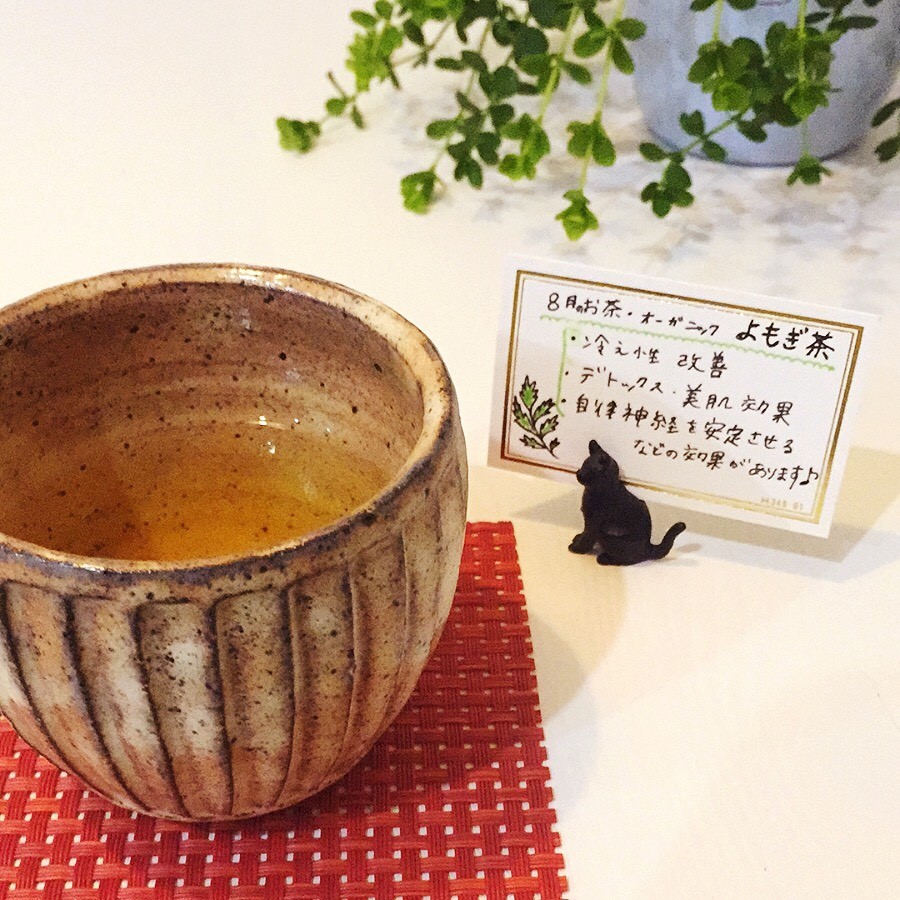 8月のお茶・オーガニック よもぎ茶
・冷え性 改善
・デトックス・美肌効果
・自律神経を安定させる
などの効果があります♪